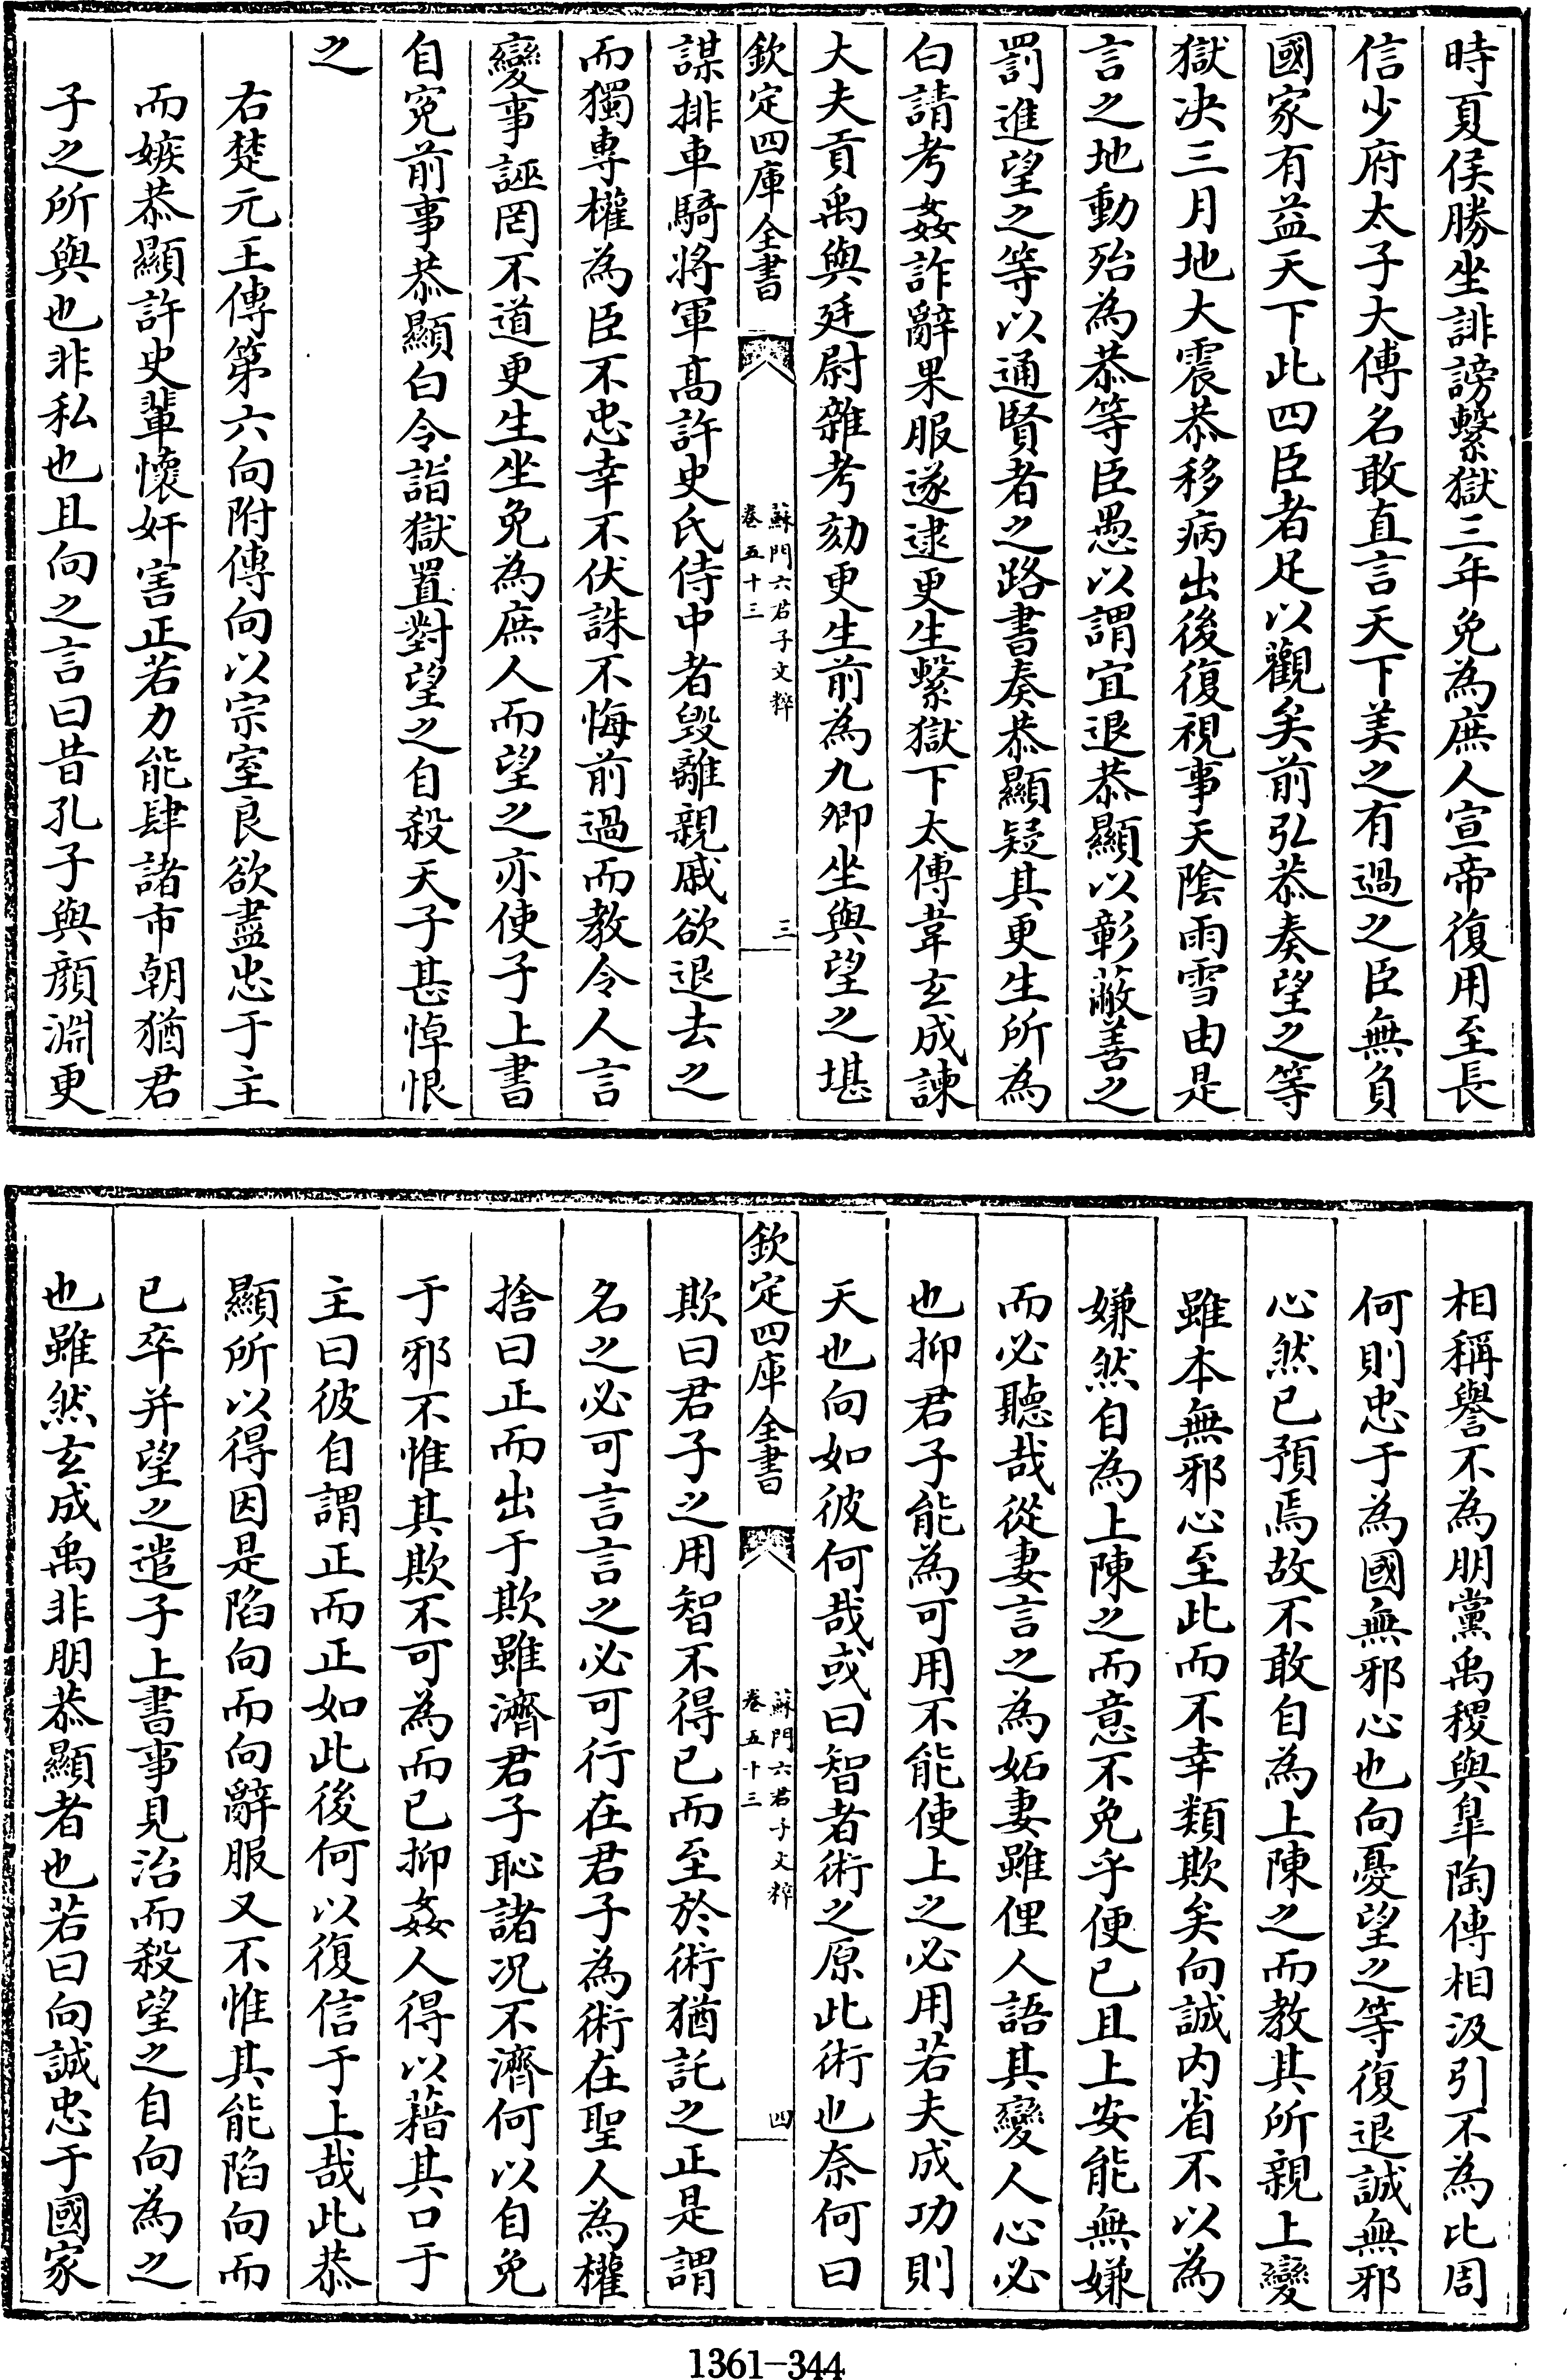 時夏侯勝坐誹謗繫獄三年免為庶人宣帝復用至長
信少府太子太傅名敢直言天下美之有過之臣無負
國家有益天下此四臣者足以觀矣前弘恭奏望之等
獄决三月地大震恭移病出後復視事天隂雨雪由是
言之地動殆為恭等臣愚以謂宜退恭顯以彰蔽善之
罰進望之等以通賢者之路書奏恭顯疑其更生所為
白請考姦詐辭果服遂逮更生繫獄下太傅韋玄成諫
大夫貢禹與廷尉雜考劾更生前為九卿坐與望之堪
欽定四庫全書
蘇門六君子文粹
卷五十三
三
謀排車騎將軍髙許史氏侍中者毀離親戚欲退去之
而獨專權為臣不忠幸不伏誅不悔前過而教令人言
變事誣罔不道更生坐免為庶人而望之亦使子上書
自寃前事恭顯白令詣獄置對望之自殺天子甚悼恨
之
右楚元王傳第六向附傳向以宗室良欲盡忠于主
而嫉恭顯許史輩懷奸害正若力能肆諸市朝猶君
子之所與也非私也且向之言曰昔孔子與顔淵更
相稱譽不為朋黨禹稷與臯陶傳相汲引不為比周
何則忠于為國無邪心也向憂望之等復退誠無邪
心然已預焉故不敢自為上陳之而教其所親上變
雖本無邪心至此而不幸類欺矣向誠内省不以為
嫌然自為上陳之而意不免乎便已且上安能無嫌
而必聽哉從妻言之為妬妻雖俚人語其變人心必
也抑君子能為可用不能使上之必用若夫成功則
天也向如彼何哉或曰智者術之原此術也奈何曰
欽定四庫全書
蘇門六君子文粹
卷五十三
四
欺曰君子之用智不得已而至於術猶託之正是謂
名之必可言言之必可行在君子為術在聖人為權
捨曰正而出于欺雖濟君子恥諸况不濟何以自免
于邪不惟其欺不可為而已抑姦人得以藉其口于
主曰彼自謂正而正如此後何以復信于上哉此恭
顯所以得因是陷向而向辭服又不惟其能陷向而
已卒并望之遣子上書事見治而殺望之自向為之
也雖然玄成禹非朋恭顯者也若曰向誠忠于國家
1361-344